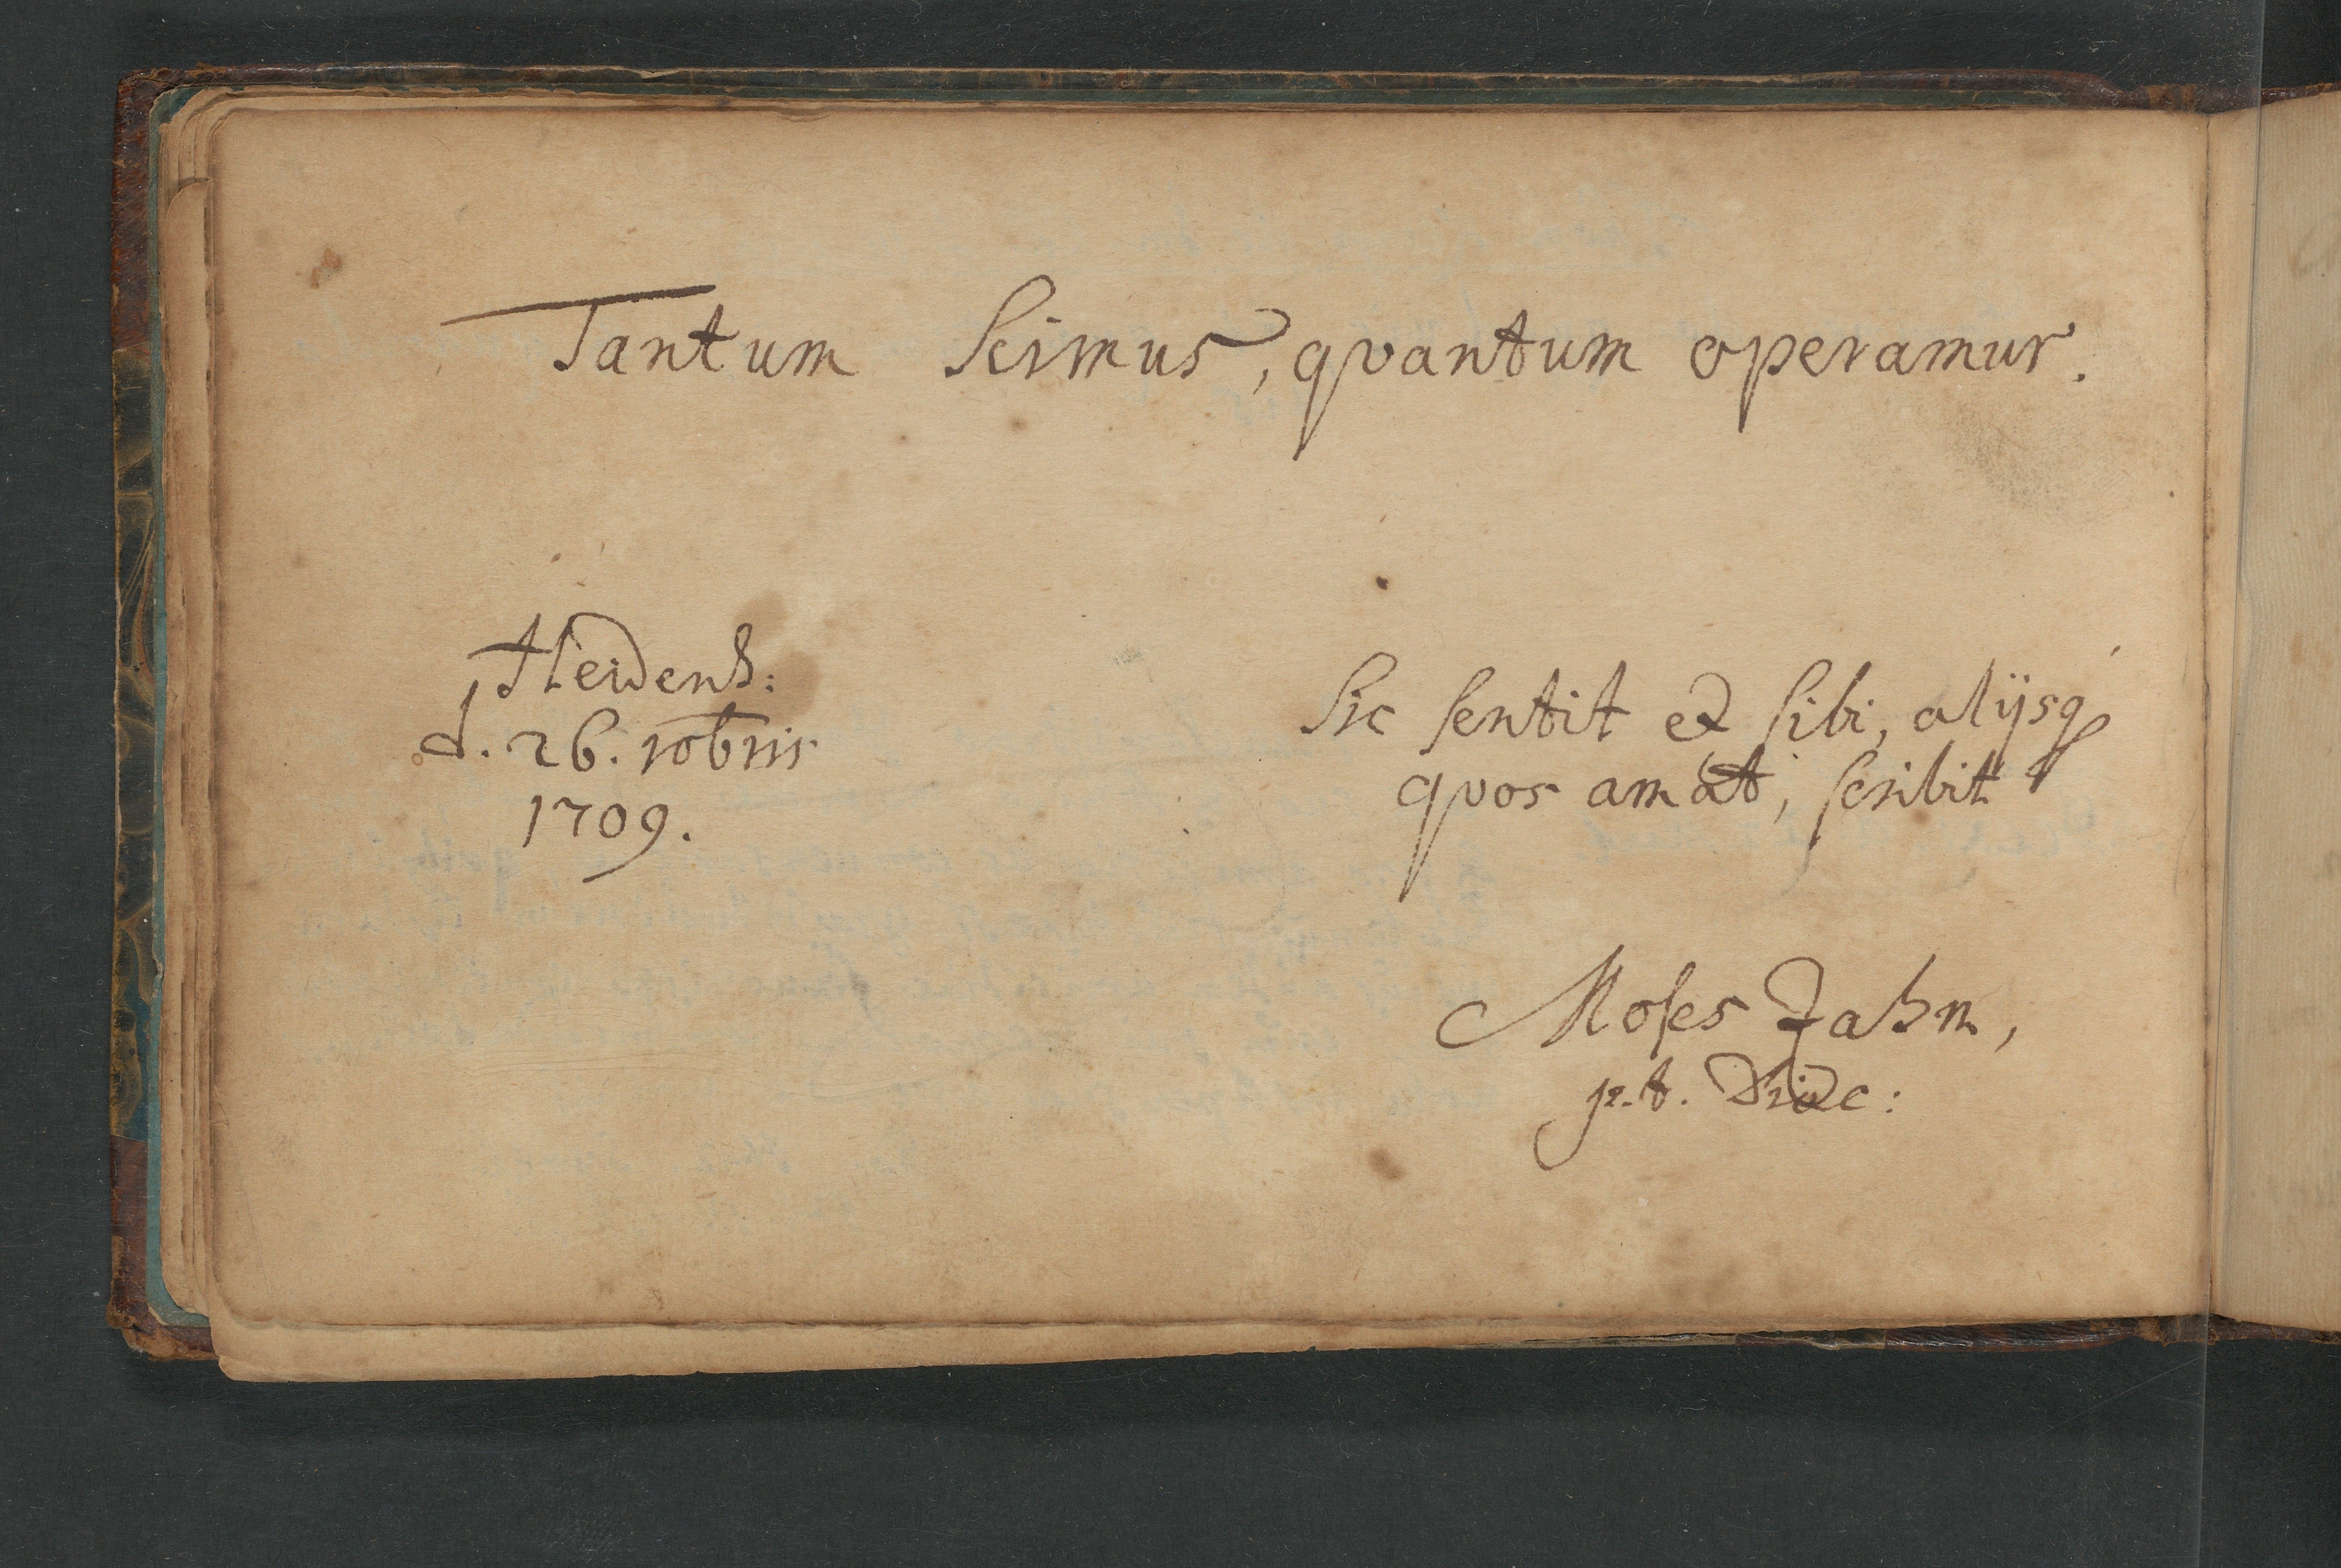 Tantum Scimus, qvantum operamur.
Heidenh:
d. 26. 10bris
1709.
Sic sentit et sibi, alijsq́
qvos amat, scribit
Moses Jahn,
p. t. Diac: